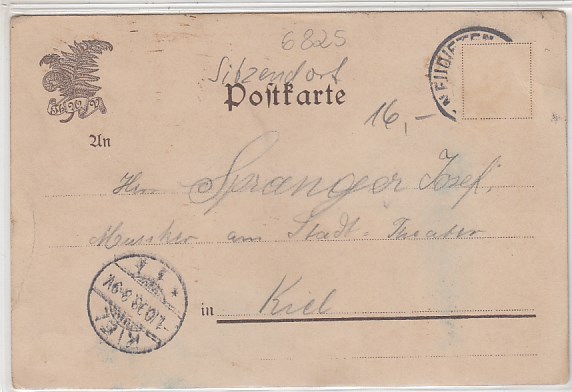 6825
Sitzendorf
Postkarte
16,-
An
Herrn Spranger Josef,
Musiker am Stadt-Theater
in Kiel
KIEL